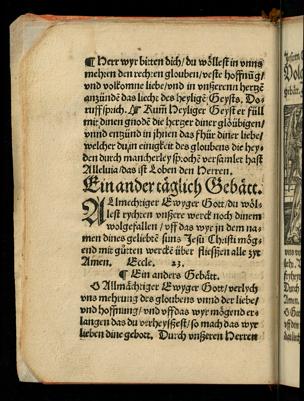 ¶ Herr wyr bitten dich/ du wöllest in vnns
mehren den rechten glouben/ veste hoffnūg/
vnd volkomne liebe/ vnd in vnserenn hertzē
anzündē das liecht des heyligē Geysts, Do-
ruff sprich. ¶ Kum Heyliger Geyst er füll
mit dinen gnodē die hertzer diner glöübigen/
vnnd entzünd in jhnen das fhür diner liebe/
welcher du in einigkit des gloubens die hey-
den durch mancherley sprochē versamlet hast
Alleluia/ das ist Loben den Herren.
Ein ander täglich Gebätt.
ALlmechtiger Ewyger Gott/ du wöl-
lest rychten vnßere werck noch dinem
wolgefallen/ vff das wye jn dem na-
men dines geliebtē suns Jesu Christi mög-
end mit gütten werckē über fliessen alle zyt
Amen. Eccle. 23.
¶ Ein anders Gebätt.
O Allmächtiger Ewyger Gott/ verlych
vns mehrung des gloubens vnnd der liebe/
vnd hoffnung/ vnd vff das wyr mögend er-
langen das du verheyssest/ so mach das wyr
lieben dine gebott. Durch vnseren Herren